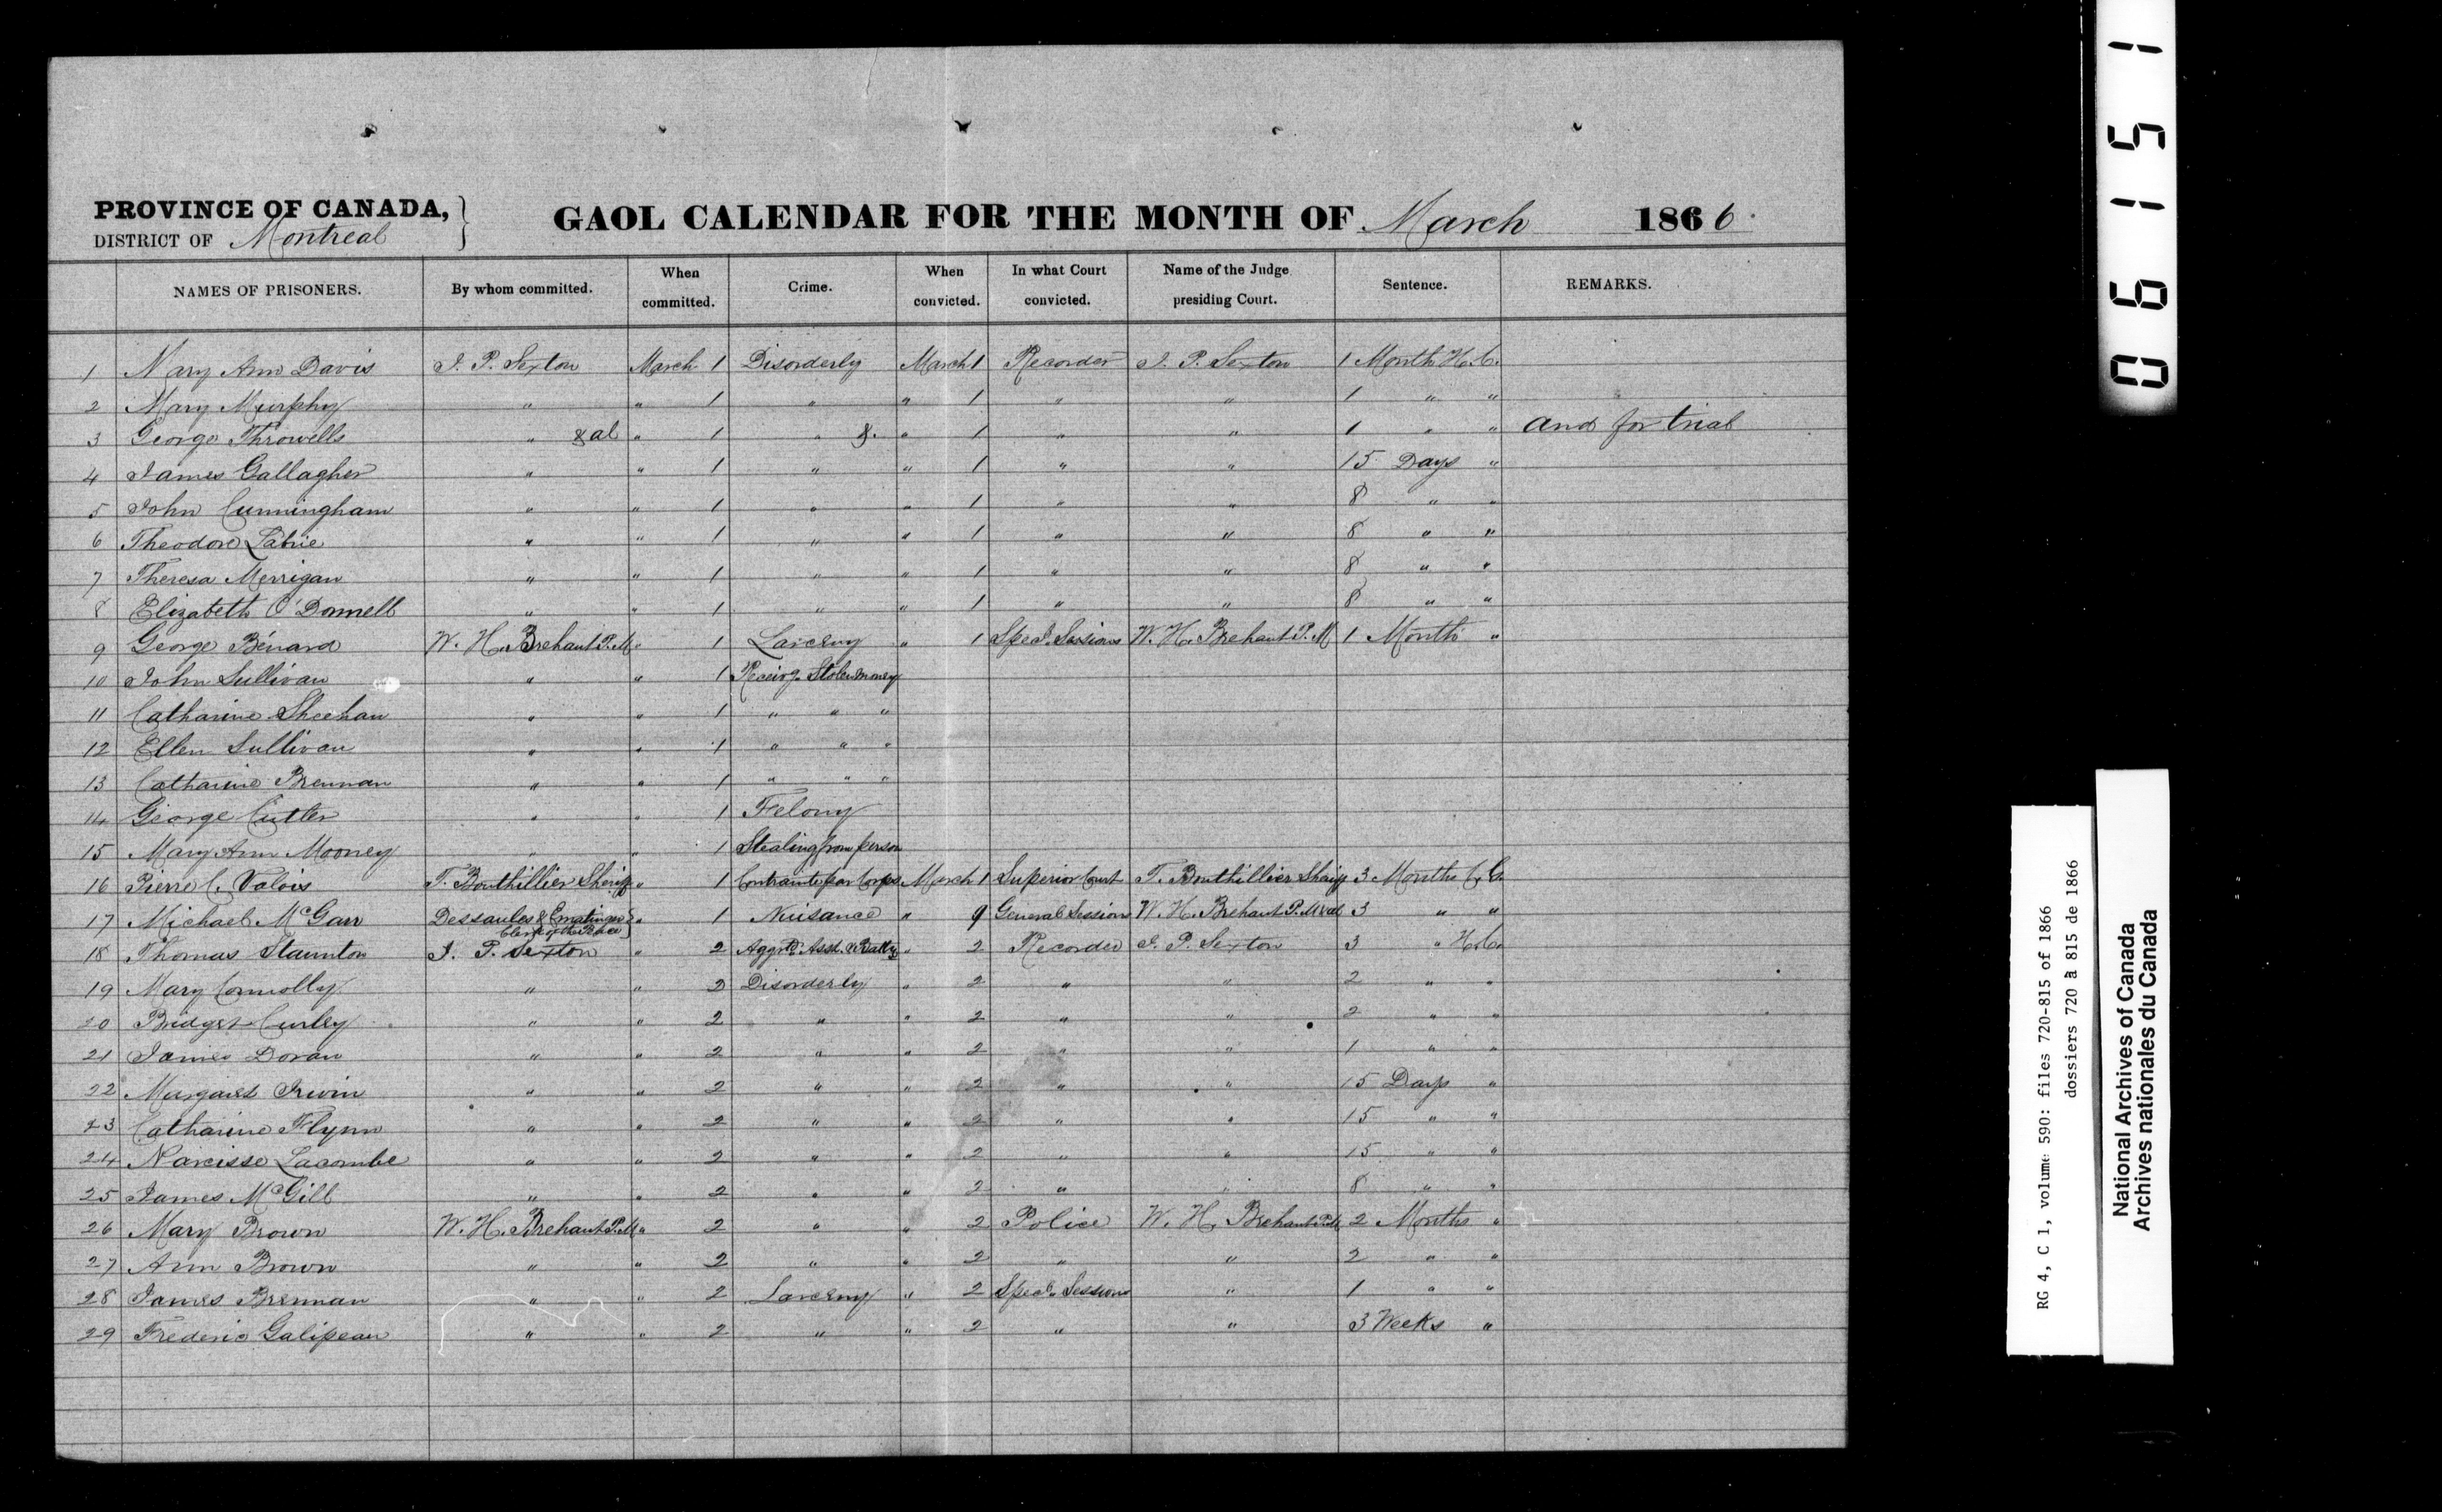 PROVINCE OF CANADA,
DISTRICT OF Montreal
GAOL CALENDAR FOR THE MONTH OF March 1866.
NAMES OF PRISONERS. By whom committed. When committed. Crime. When convicted. In what Court convicted. Name of the Judge presiding Court. Sentence. REMARKS.
1 Mary Ann Davis J. P. Sexton March 1 Disorderly March 1 Recorder J. P. Sexton 1 Month H.L.
2 Mary Murphy " " 1 " " 1 " " 1 " "
3 George Throwells " & al " 1 " &. " 1 " " 1 " " and for trial
4 James Gallagher " " 1 " " 1 " " 15 Days "
5 John Cunningham " " 1 " " 1 " " 8 " "
6 Theodore Labrie " " 1 " " 1 " " 8 " "
7 Theresa Merrigan " " 1 " " 1 " " 8 " "
8 Elizabeth O'Donnell " " 1 " " 1 " " 8 " "
9 George Bénard W. H. Brehaut P.M. " 1 Larceny " 1 Specl. Sessions W. H. Brehaut P.M 1 Month "
10 John Sullivan " " 1 Receivg. Stolen money
11 Catharine Sheehan " " 1 " " "
12 Ellen Sullivan " " 1 " " "
13 Catharine Brennan " " 1 " " "
14 George Cutler " " 1 Felony
15 Mary Ann Mooney " " 1 Stealing from person
16 Pierre C. Valois T. Bouthillier Sheriff " 1 Contrainte par Corps March 1 Superior Court T. Bouthillier Sheriff 3 Months C.G.
17 Michael McGarr Dessaules & Ermatinger Clerk of the Peace " 1 Nuisance " 9 General Sessions W. H. Brehaut P.M & al 3 " "
18 Thomas Staunton J. P. Sexton " 2 Aggrd. Asst. & Batty " 2 Recorder J. P. Sexton 3 " H.L.
19 Mary Connolly " " 2 Disorderly " 2 " " 2 " "
20 Bridget Curley " " 2 " " 2 " " 2 " "
21 James Doran " " 2 " " 2 " " 1 " "
22 Margaret Irwin " " 2 " " 2 " " 15 Days "
23 Catharine Flynn " " 2 " " 2 " " 15 " "
24 Narcisse Lacombe " " 2 " " 2 " " 15 " "
25 James McGill " " 2 " " 2 " " 8 " "
26 Mary Brown W. H. Brehaut P.M " 2 " " 2 Police W. H. Brehaut P.M 2 Months "
27 Ann Brown " " 2 " " 2 " " 2 " "
28 James Brennan " " 2 Larceny " 2 Specl. Sessions " 1 " "
29 Frederic Galipeau " " 2 " " 2 " " 3 Weeks "
06151
RG 4, C 1, volume 590: files 720-815 of 1866
dossiers 720 à 815 de 1866
National Archives of Canada
Archives nationales du Canada